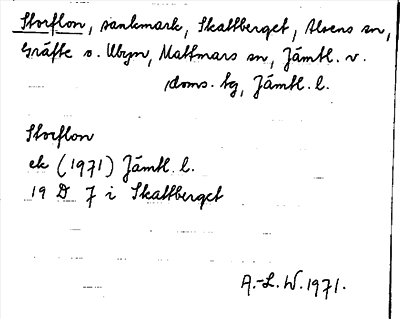 Storflon, sankmark, Skattberget, Alsens sn,
Gräfte o. Ubyn, Mattmars sn, Jämtl. v.
doms. tg, Jämtl. l.
Storflon
ek (1971) Jämtl. l.
19 D 7 i Skattberget
A.-L. W. 1971.